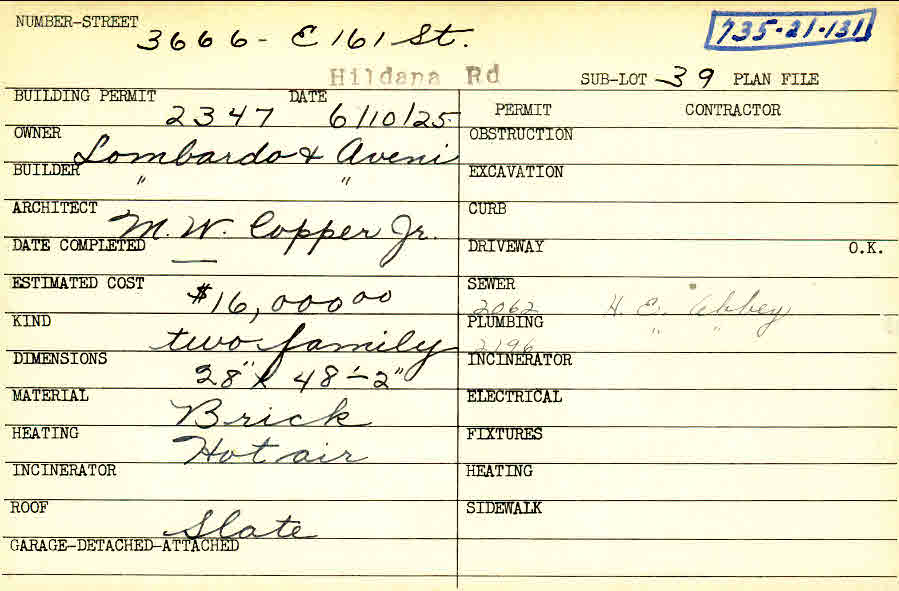 NUMBER-STREET 3666 - E 161 St. 735-21-131
Hildana Rd SUB-LOT 39 PLAN FILE
BUILDING PERMIT 2347 DATE 6/10/25
PERMIT CONTRACTOR
OWNER Lombardo & Aveni
OBSTRUCTION
BUILDER " "
EXCAVATION
ARCHITECT M. W. Copper Jr.
CURB
DATE COMPLETED —
DRIVEWAY O.K.
ESTIMATED COST $16,000 00
SEWER 2062 H. E. Abbey
KIND two family
PLUMBING 2196 " "
DIMENSIONS 28" x 48'-2"
INCINERATOR
MATERIAL Brick
ELECTRICAL
HEATING Hot air
FIXTURES
INCINERATOR
HEATING
ROOF Slate
SIDEWALK
GARAGE-DETACHED-ATTACHED